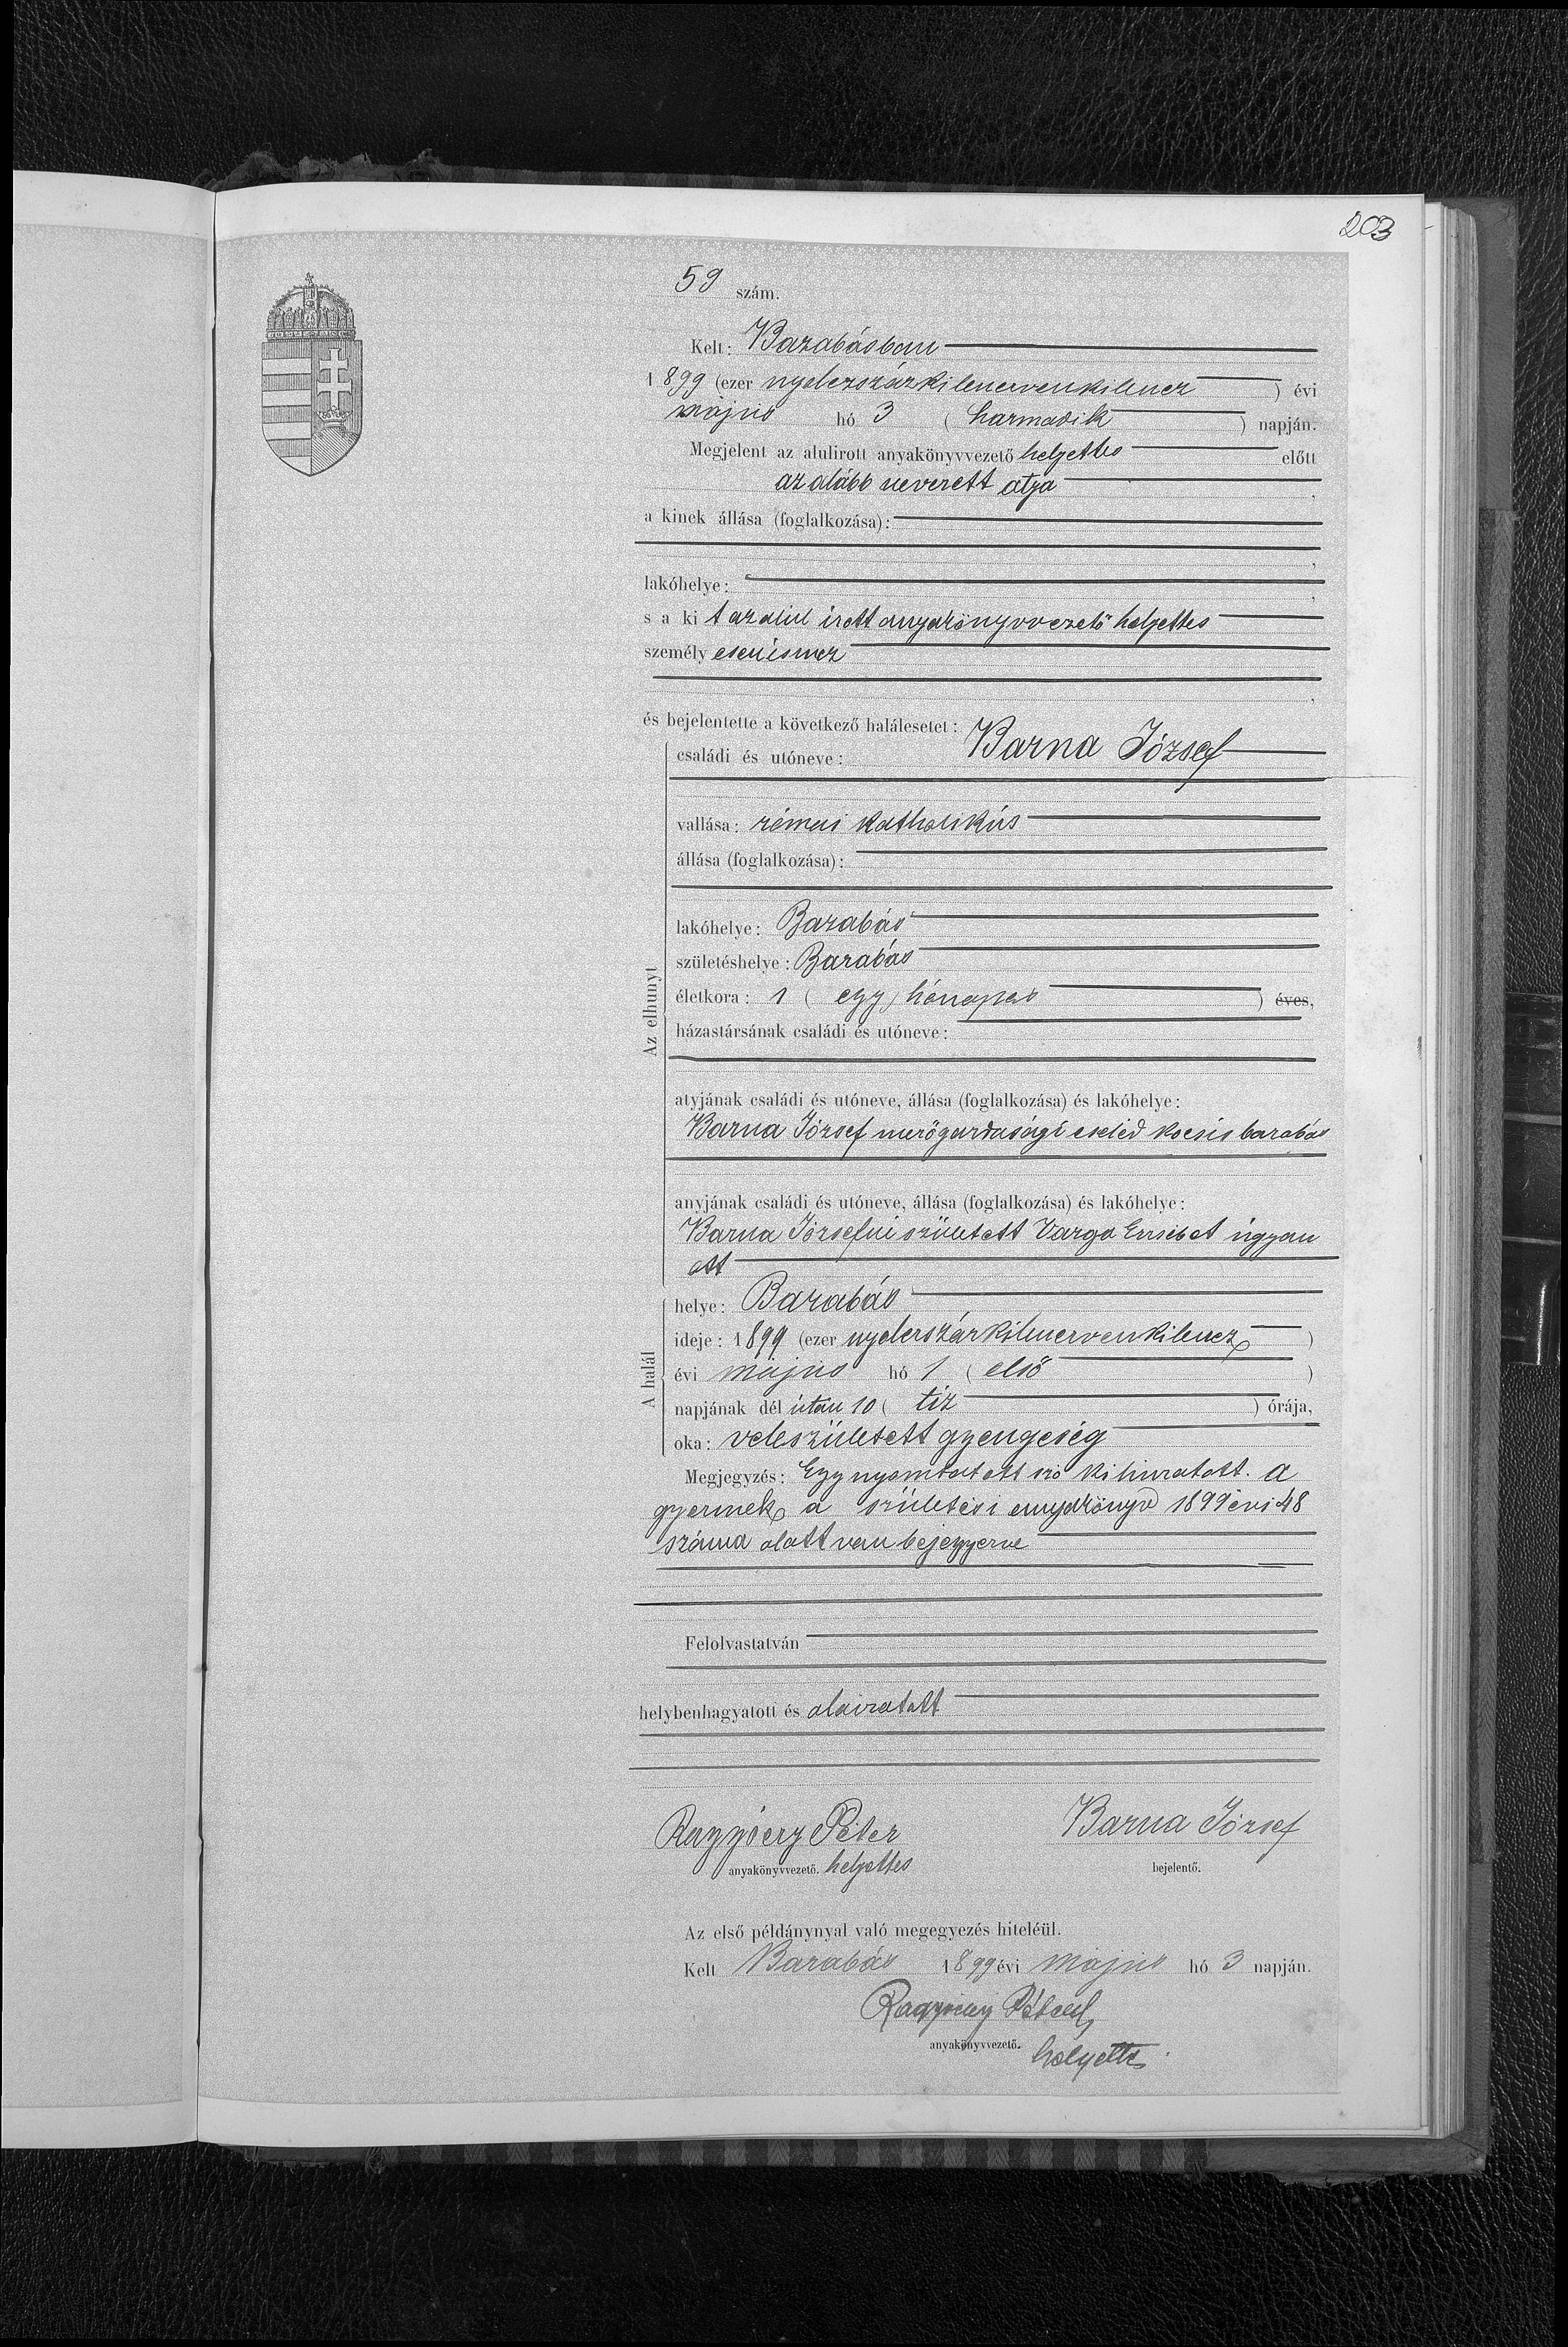 203
59 szám.
Kelt: Barabásban
1899 (ezer nyolczszázkilenczvenkilencz) évi
május hó 3 (harmadik) napján.
Megjelent az alulirott anyakönyvvezető helyettes előtt
az alább nevezett atja,
a kinek állása (foglalkozása):
lakóhelye:
s a kit az alul irott anyakönyvvezető helyettes
személyesen ismer
és bejelentette a következő halálesetet:
Az elhunyt
családi és utóneve: Barna József
vallása: római katholikús
állása (foglalkozása):
lakóhelye: Barabás
születéshelye: Barabás
életkora: 1 (egy) hónapos ) éves,
házastársának családi és utóneve:
atyjának családi és utóneve, állása (foglalkozása) és lakóhelye:
Barna József mezőgazdasági cseléd kocsis barabás
anyjának családi és utóneve, állása (foglalkozása) és lakóhelye:
Barna Józsefné született Varga Erzsébet úgyan
ott
A halál
helye: Barabás
ideje: 1899 (ezer nyolczszázkilenczvenkilencz)
évi május hó 1 (első)
napjának dél útán 10 (tiz) órája,
oka: veleszületett gyengeség
Megjegyzés: Egy nyomtatott szó kihuzatott. A
gyermek a születési anyakönyv 1899 évi 48
száma alatt van bejegyezve
Felolvastatván
helybenhagyatott és aláiratott
Péter
anyakönyvvezető. helyettes
Barna József
bejelentő.
Az első példánynyal való megegyezés hiteléül.
Kelt Barabás 1899 évi május hó 3 napján.
anyakönyvvezető. helyettes